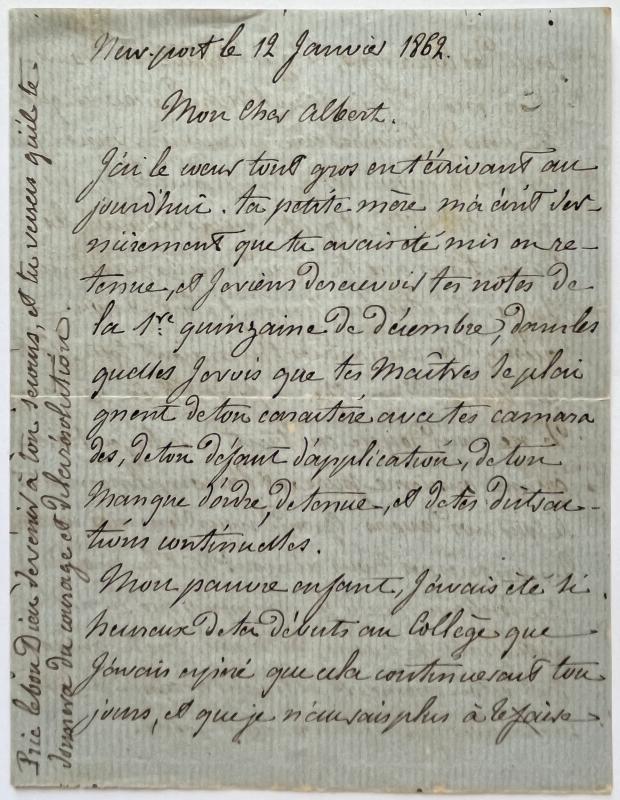 New-port le 12 Janvier 1862.
Mon cher Albert.
J'ai le coeur tout gros en t'écrivant au
jourd'hui. ta petite mère m'a écrit der-
nièrement que tu avais été mis en re-
tenue, et Je viens de recevoir tes notes de
la 1re quinzaine de décembre, dans les
quelles Je vois que tes Maîtres se plai
gnent de ton caractère avec tes camara
des, de ton défaut d'application, de ton
Manque d'ordre, de tenue, et de tes distrac-
tions continuelles.
Mon pauvre enfant, J'avais été si
heureux de tes débuts au Collège que
J'avais espéré que cela continuerait tou
jours, et que je n'aurais plus à te faire
Prie le bon Dieu de venir à ton secours, et tu verras qu'il te
donnera du courage et de la résolution.